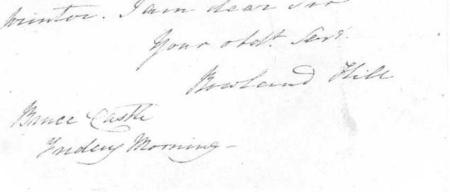 winter. I am dear Sir
Your obdt. Servt.
Rowland Hill
Bruce Castle
Friday Morning –